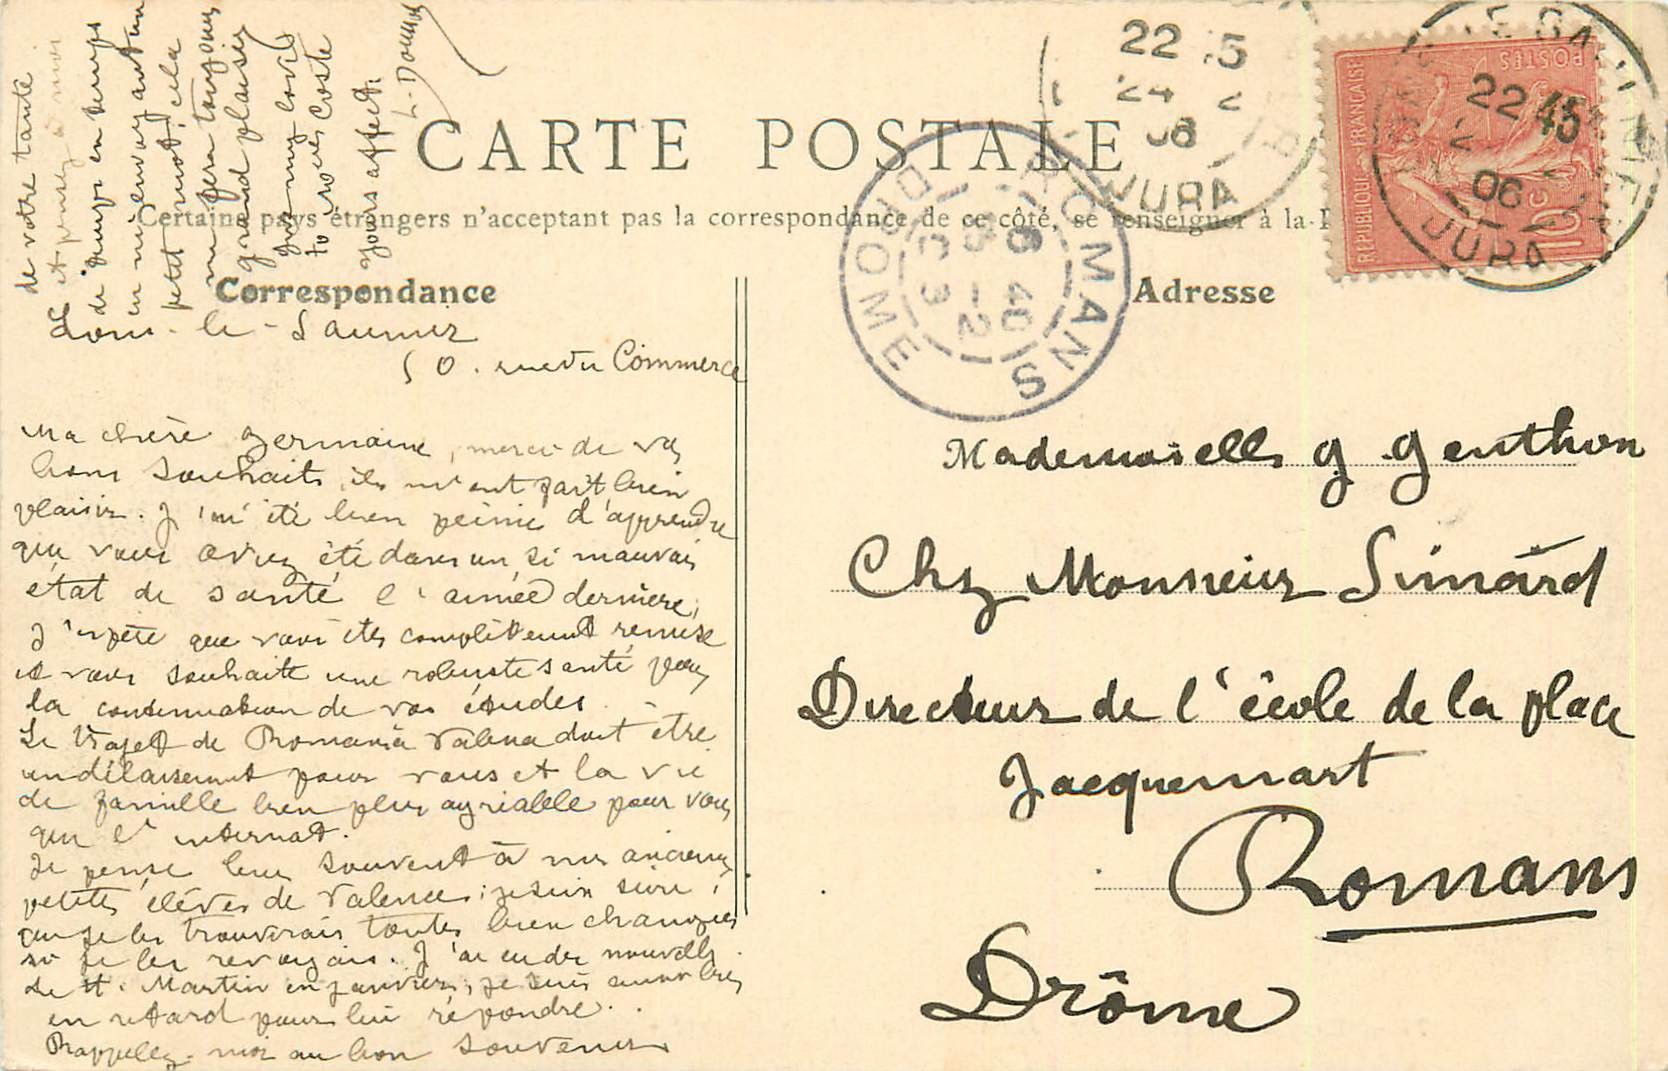 CARTE POSTALE
Certains pays étrangers n'acceptant pas la correspondance de ce côté, se renseigner à la
Correspondance
Adresse
Lons-le-Saunier
50. rue du Commerce
Ma chère Germaine, merci de vos
bons souhaits, ils m'ont fait bien
plaisir. J'ai été bien peinée d'apprendre
que vous aviez été dans un si mauvais
état de santé l'année dernière;
j'espère que vous êtes complètement remise
et vous souhaite une robuste santé pour
la continuation de vos études.
Le trajet de Romans à Valence doit être
un délassement pour vous et la vie
de famille bien plus agréable pour vous
que l'internat.
Je pense bien souvent à mes anciennes
petites élèves de Valence; je suis sûre
que je les trouverais toutes bien changées
si je les revoyais. J'ai eu des nouvelles
de H. Martin en janvier; je suis aussi bien
en retard pour lui répondre.
Rappelez-moi au bon souvenir
de votre tante
et pensez à moi
de temps en temps
en m'envoyant un
petit mot, cela
me fera toujours
grand plaisir
for my love
to voces coste
yours affect.
L. Doumas
Mademoiselle G Genthon
Chez Monsieur Simard
Directeur de l'école de la place
Jacquemart
Romans
Drôme
REPUBLIQUE FRANÇAISE
POSTES
10 c
22 45
06
JURA
22 15
24 2
06
JURA
ROMANS
DROME
6 40
3 -2